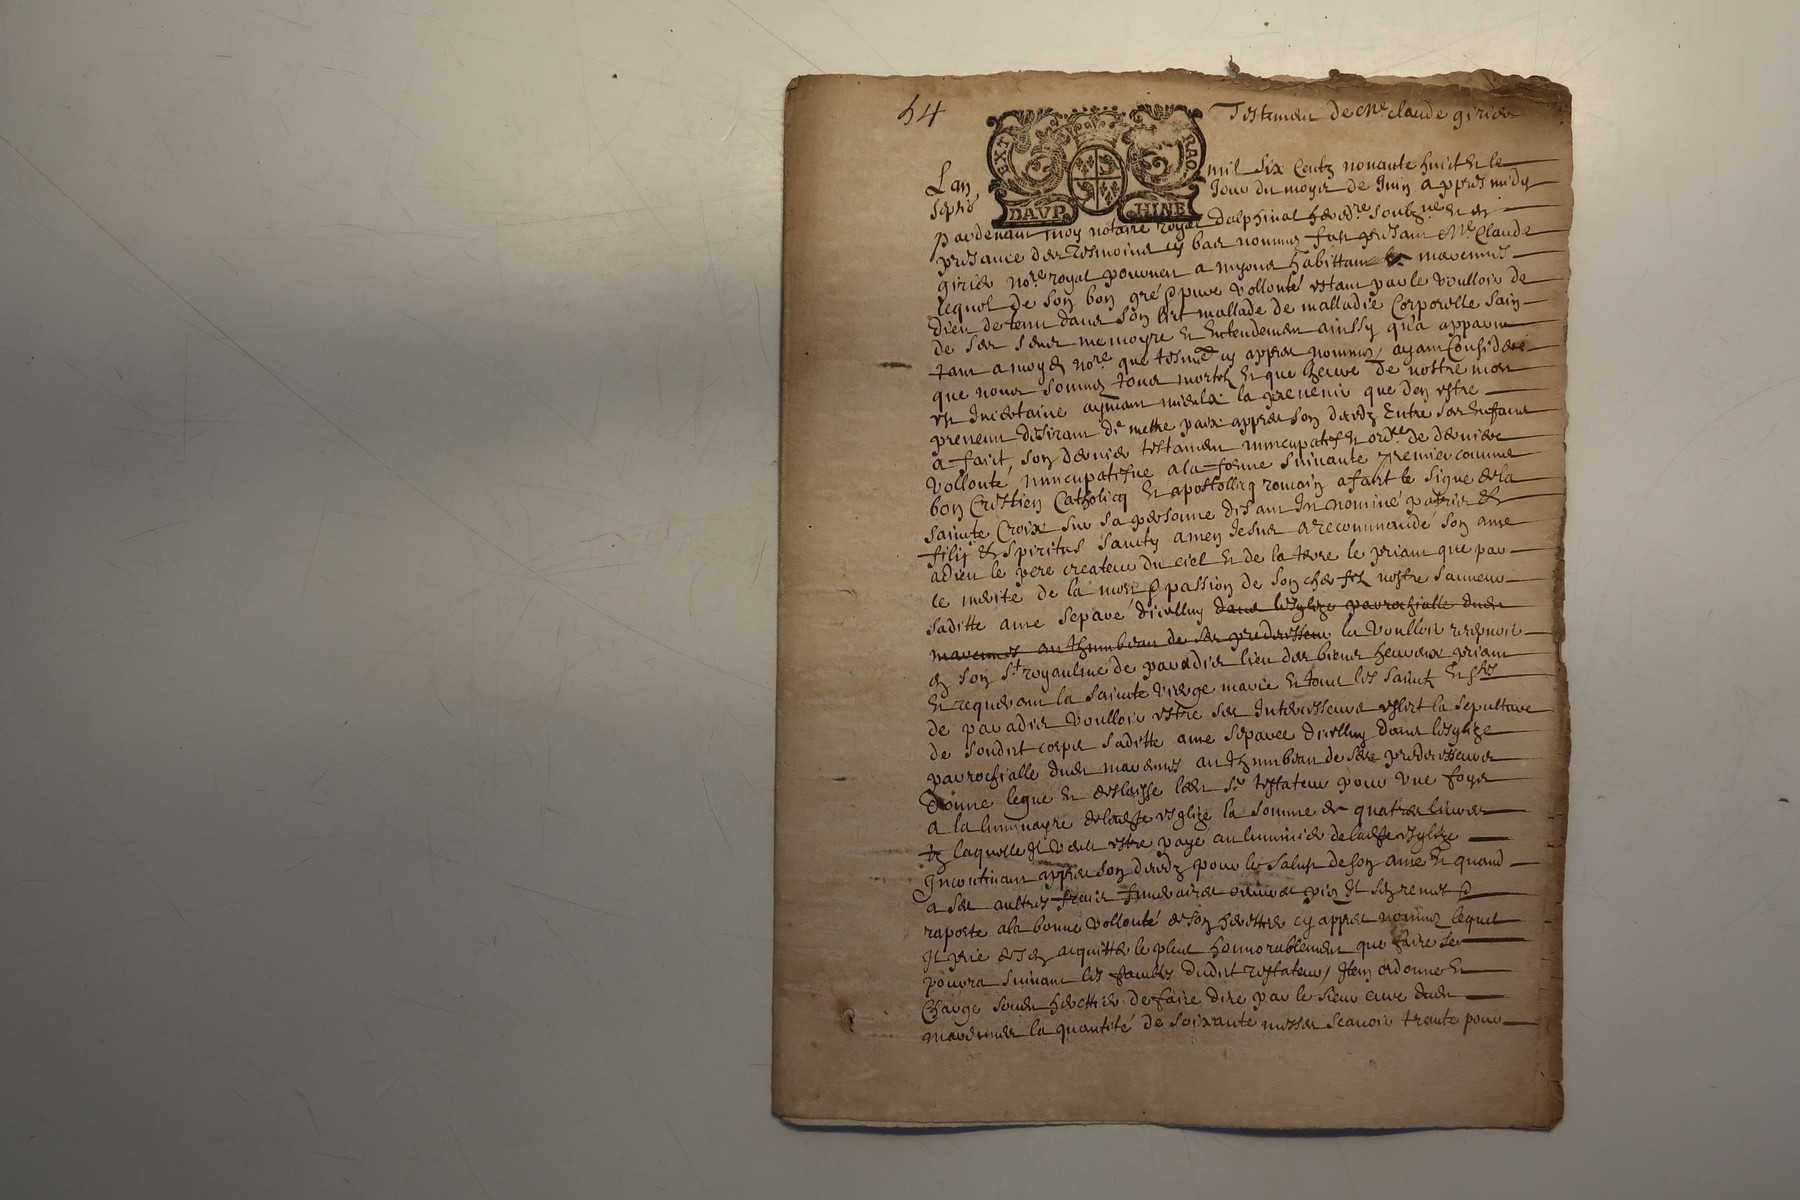 54
Testament de Me claude girier
EXT RAO
DAVP HINE
Lan mil six centz nonante huict et le
jour du moys de Juin appres midy
pardevant moy notaire royal dalphinal heredre soubzne et en
presance des tesmoins cy bas nommes fust presant Me Claude
girier nore royal habittant marennes
lequel de son bon gré & pure vollonté estant par le voulloir de
dieu detenu dans son lict mallade de malladie Corporelle sain
de ses sens memoyre et Entendement ainssy quil a apparu
tant a moyd nore que tesmes cy appres nommes / ayant Consideré
que nous sommes tous mortelz et que lheure de nostre mort
est Incertaine aymant mieulx la prevenir que den estre
prevenu desirant de mettre paix appres son decedz Entre ses Enfans
a faict son dernier testament nuncupatif et ordre de derniere
vollonté nuncupatifue a la forme suivante premier comme
bon Crestien Catholicq et apostollicq romain a faict le signe de la
sainte Croix sur sa personne disant In nominé patris et
filij et spiritus sancty amen Jesus a recommandé son ame
a dieu le pere createur du ciel et de la terre le priant que par
le merite de la mort & passion de son cher filz nostre sauveur
saditte ame separé dicelluy dans lesglize parrochialle dudt
marennes au thumbeau de ses predecesseurs la voulloir recepvoir
en son St royaulme de paradis lieu des biens heureux priant
et requerant la sainte vierge marie et tous les saintz et stes
de paradis voulloir estre ses Intercesseurs eslit la sepulture
de sondit corps saditte ame separee dicelluy dans lesglize
parrochialle dudt marennes au thumbeau de ses predecesseurs
donne legue et deslaisse ledt Sr testateur pour une foys
a la luminayre de ladte esglize la somme de quatres livres
laquelle Il veut estre payé au luminier de ladte esglize
Incontinant appres son decedz pour le salut de son ame Et quand
a ses aultres fraix funeraires oeuvres pies Il sen remet &
raporte a la bonne vollonté de son herettier cy appres nommez lequel
Il prie de sen acquitter le plus honnorablement que faire se
pourra suivant les facultes dudit testateur / Item ordonne et
Charge sondt herettier de faire dire par le sieur cure dudt
marennes la quantité de soixante messes scavoir trente pour